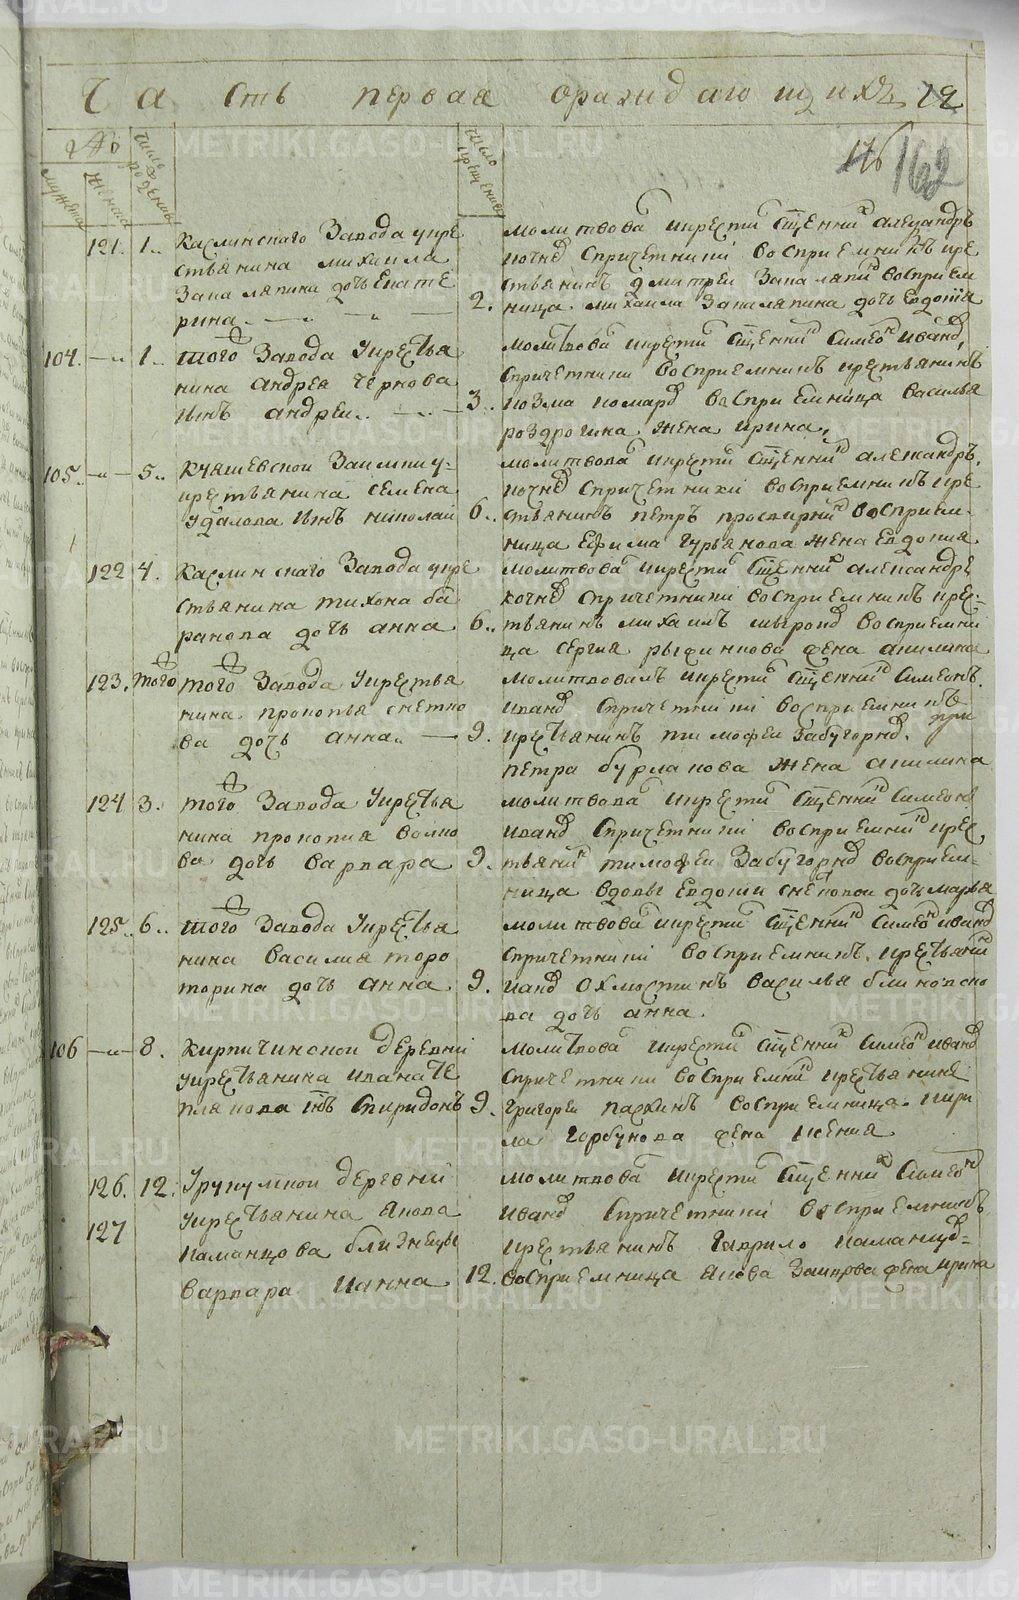 Часть первая ораждающихся 12
№
мужеска
женска
число рождения
число крещения
116 162
121. 1.. Каслинского Завода у кре
стьянина михаила
Запаляпина дочь Екате
рина
молитвова и крести Священник алеѯандръ
кочнев спричетники восприемникъ кре
стьянинъ дмитреи Запаляпин восприем
2. ница. михаила Запаляпина дочь Евдокiя
104. 1.. того Завода у крестья
нина андрея чернова
сынъ андреи..
молитвова и крести Священник Симеон иванов,
спричетники восприемникъ крестьянинъ
3.. козма комаров восприемница василья
роздрогина жена ирина.
105. 5.. куяшевскои Заимки у-
крестьянина семена
удалова сынъ николаи
молитвова и крести Священник александръ.
кочнев спричетники восприемникъ кре
6.. стьянинъ петръ просвирнин восприем-
ница Ефима гурьянова жена Евдокия.
122 4. Каслинскаго Завода у кре
стьянина тихона ба
ранова дочь анна
молитвова и крести Священник александръ
кочнев спричетники восприемникъ крес-
6.. тьянинъ михаилъ широков восприемни
ца сергия рыбникова жена акилина
123. того того Завода у крестья
нина прокопья снетко
ва дочь анна.
молитвовалъ и крести Священник Симеонъ.
иванов спричетники восприемникъ
9. крестьянинъ тимофеи Забугорнов. при
петра бурмакова жена акилина
124 3. того Завода у крестья
нина прокопия волко
ва дочь варвара
молитвова и крести Священник Симеонъ
иванов спричетники восприемник крес
9. тьянин тимофеи Забугорнов восприем-
ница вдовы Евдокии снетковои дочь марья
125.. 6.. того Завода у крестья
нина василия торо
торина дочь анна
молитвова и крести Священник Симеон иванов
спричетники восприемникъ. крестьянин
9. иванов Охлюстинъ василья блиновско
ва дочь анна.
106 8. Кирпичинскои деревни
у крестьянина ивана те
плякова сынъ Спиридонъ
молитвова и крести Священник Симеон иванов
спричетники восприемник крестьянинъ
9. григореи паскинъ восприемница. кири
ла горбунова жена ксения
126. 12. Урукулскои деревни
127 у крестьянина якова
каманцова близнецы
варвара и анна
молитвова и крести Священник Симеон
иванов спричетники восприемникъ
крестьянинъ гаврило каманцов-
12. восприемница якова Заирова жена ирина